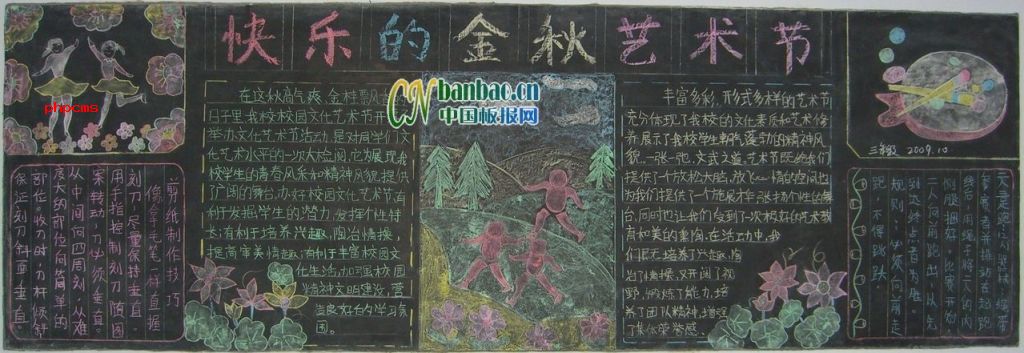 快乐的金秋艺术节
phpcms
CN banbao.cn
中国板报网
在这秋高气爽、金桂飘
日子里,我校校园文化艺术节开
举办文化艺术节活动,是对同学们文
化艺术水平的一次大检阅,它为展现我
校学生的青春风采和精神风貌,提供
了广阔的舞台,办好校园文化艺术节,有
利于发掘学生的潜力,发挥个性特
长;有利于培养兴趣,陶冶情操,
提高审美情趣;有利于丰富校园文
化生活,加强校园
精神文明建设,营
造良好的学习氛
围。
丰富多彩、形式多样的艺术节
充分体现了我校的文化素质和艺术修
养,展示了我校学生朝气蓬勃的精神风
貌。一张一弛,文武之道。艺术节既给我们
提供了个放松大脑、放飞心情的空间,也
为我们提供了一个施展才华,张扬个性的舞
台,同时也让我们受到了一次极好的艺术教
育和美的熏陶。在活动中,我
们既培养了兴趣,陶
冶了情操,又开阔了视
野,锻炼了能力,培
养了团队精神,增强
了集体荣誉感。
2009.10
剪纸制作技巧
像拿毛笔一样直握
刻刀,尽量保持垂直。
用手指控制刻刀随图
案转动,刀必须垂直。
从中间向四周刻,从难
度大的部位向简单的
部位。收刀时,刀杆倾斜
保证刻刀斜面垂直。
二人向前跑出,以先
到达终点者为胜。
规则:必须向前走
跑,不得跳跃。